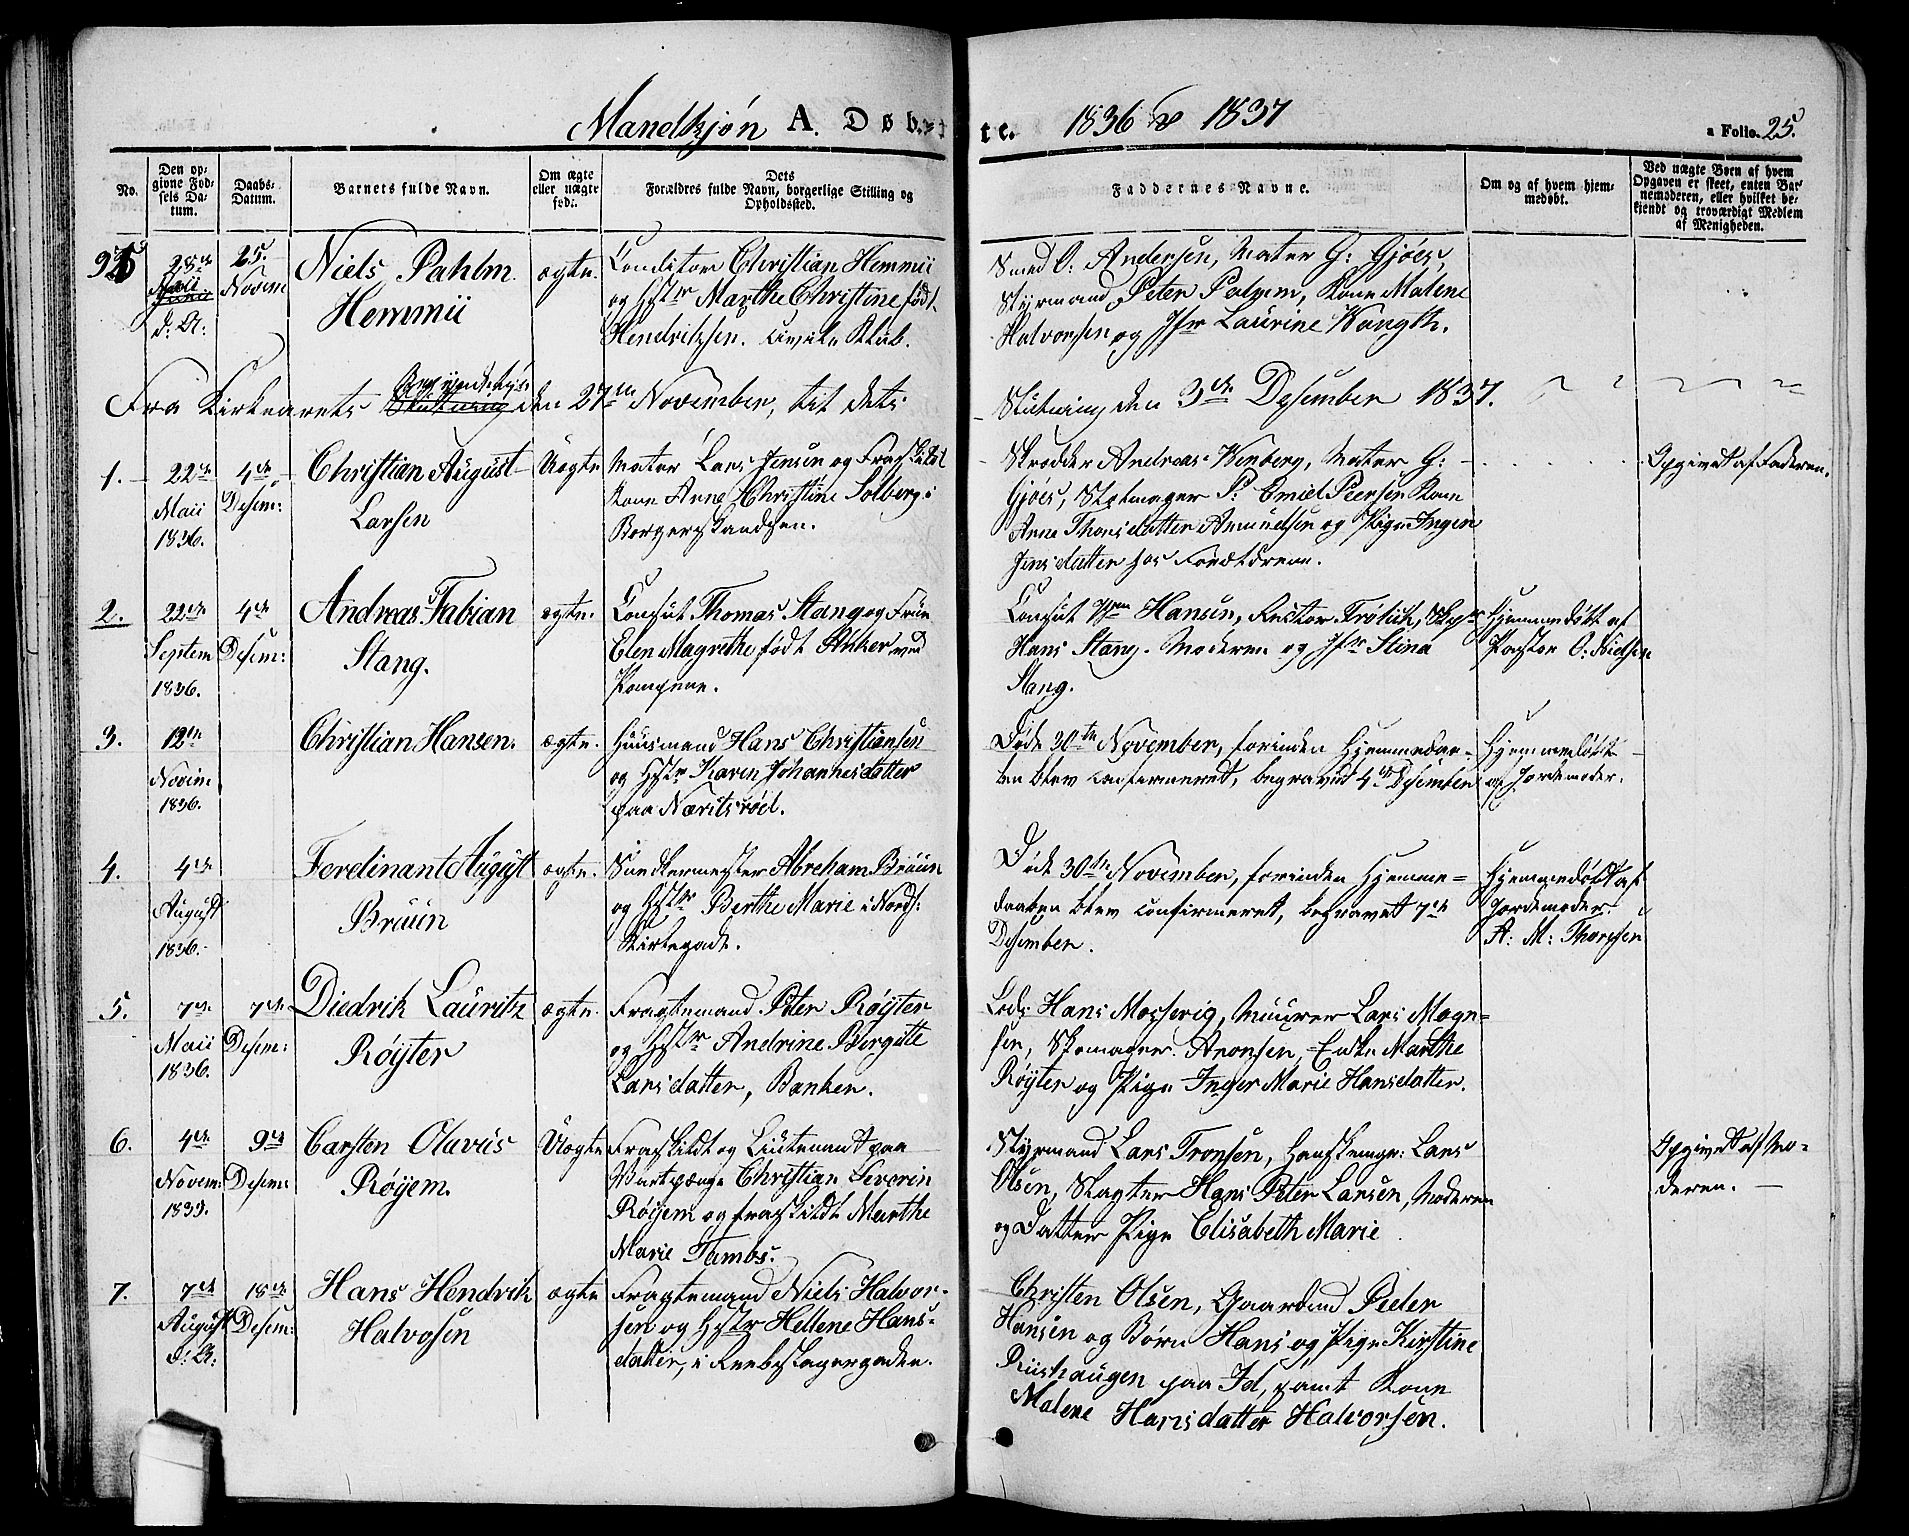 Mandkjøn A. Døb-
te. 1836 & 1837
a Folio. 25.
No.
Den op-
givne Fød-
sels Da-
tum.
Daabs-
Datum.
Barnets fulde Navn.
Om ægte
eller uægte
fød:.
Dets
Forældres fulde Navn, borgerlige Stilling og
Opholdssted.
Faddernes Navne.
Om og af hvem hjem-
medøbt.
Ved uægte Born af hvem
Opgaven er skeet, enten Bar-
nemoderen, eller hvilket be-
kjendt og troværdigt Medlem
af Menigheden.
Maii
d: A:
25.
Novem
Niels Pahlm
Hemmii
ægte.
Conditor Christian Hemmii
og Hstr Marthe Christine født
Hendritzsen. Civile Klub.
Smed O: Andersen, Mater G: Gjöes,
Styrmand Peter Palzem, Kone Malene
Halvorsen og Jfr Laurine Wangth.
Fra Kirkeaarets Begyndelse den 27de November, til dets
Slutning den 3die Desember 1837.
1.
22de
Maii
1836.
4de
Desem:
Christian August
Larsen
Uægte
Mator Lars Jensen og Fraskildt
Kone Anne Christine Solberg i
Borgerskandsen.
Skrædder Andreas Wenberg, Mater G:
Gjöes, P: Emiel Peersen Kone
Anne Thorsdatter Amundsen og Pige Inger
Jensdatter hos Forældrene.
Opgivet af Faderen.
2.
22de
Septem
1836.
4de
Desem:
Andreas Fabian
Stang.
ægte.
Consul Thomas Stang og Frue
Elen Magrethe født Anker ved
Pompene.
Consul Hansen, Rector Frölich,
Hans Stang. Moderen og Jfr Stina
Stang.
Hjemmedøbt af
Pastor O: Nielsen
3.
12te
Novem
1836.
Christian Hansen.
ægte.
Huusmand Hans Christiansen
og Hstr Karen Johannesdatter
paa Næritsröd.
Døde 30te November, forinden Hjemmedaa-
ben blev confirmeret, begravet 4de Desember
Hjemmedøbt
af Jordemoder.
4.
4de
August
1836.
Ferdinant August
Bruun
ægte.
Snedkermester Abreham Bruun
og Hstr Berthe Marie i Nords:
Kirkegade.
Døde 30te November, forinden Hjemme=
daaben blev confirmeret, begravet 7de
Desember.
Hjemmedøbt af
Jordemoder.
A: M: Thoresen
5.
7de
Maii
1836.
7de
Desem:
Diedrik Lauritz
Röyter
ægte.
Fragtemand Peter Röyter
og Hstr Andrine Bergitte
Larsdatter, Banken.
Lods Hans Mosserig, Muurer Lars Magn=
sen, Skomager Aronsen, Enke Marthe
Röyter og Pige Inger Marie Hansdatter.
6.
4de
Novem:
1833.
9de
Desem:
Carsten Olavus
Röyem.
Uægte
Fraskildt og Liutenant paa
Wartpænge Christian Severin
Röyem og fraskildt Marthe
Marie Tambs.
Styrmand Lars Tronsen, Handskemgr: Lars
Olsen, Slagter Hans Peter Larsen, Moderen
og Datter Pige Elisabeth Marie
Opgivet af Mo=
deren.
7.
7de
August
d: A:
18de
Desem:
Hans Hendrik
Halvosen
ægte
Fragtemand Niels Halvor-
sen og Hstr Hellene Hans=
datter, i Reebslagergaden.
Christen Olsen, Gaardmd Peder
Hansen og Børn Hans og Pige Kirstine
Riishaugen paa Id, samt Kone
Malene Hansdatter Halvorsen.